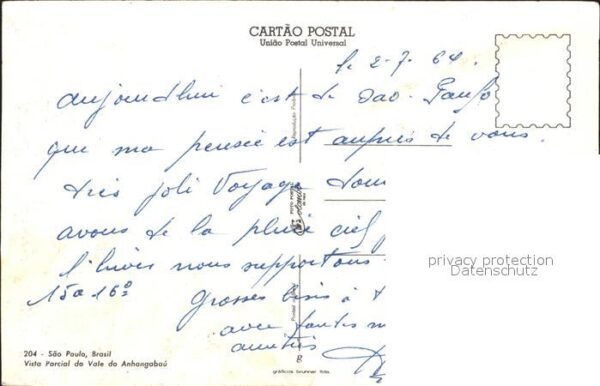 CARTÃO POSTAL
União Postal Universal
le 2-7. 64.
aujourd'hui c'est de Sao-Paulo
que ma pensée est auprès de vous.
très joli Voyage
avons de la pluie ciel
l'hiver nous supportons
15 a 16°
Grosses bises à t
avec toutes m
amitiés
204 - São Paulo, Brasil
Vista Parcial do Vale do Anhangabaú
gráficos brunner ltda.
privacy protection
Datenschutz